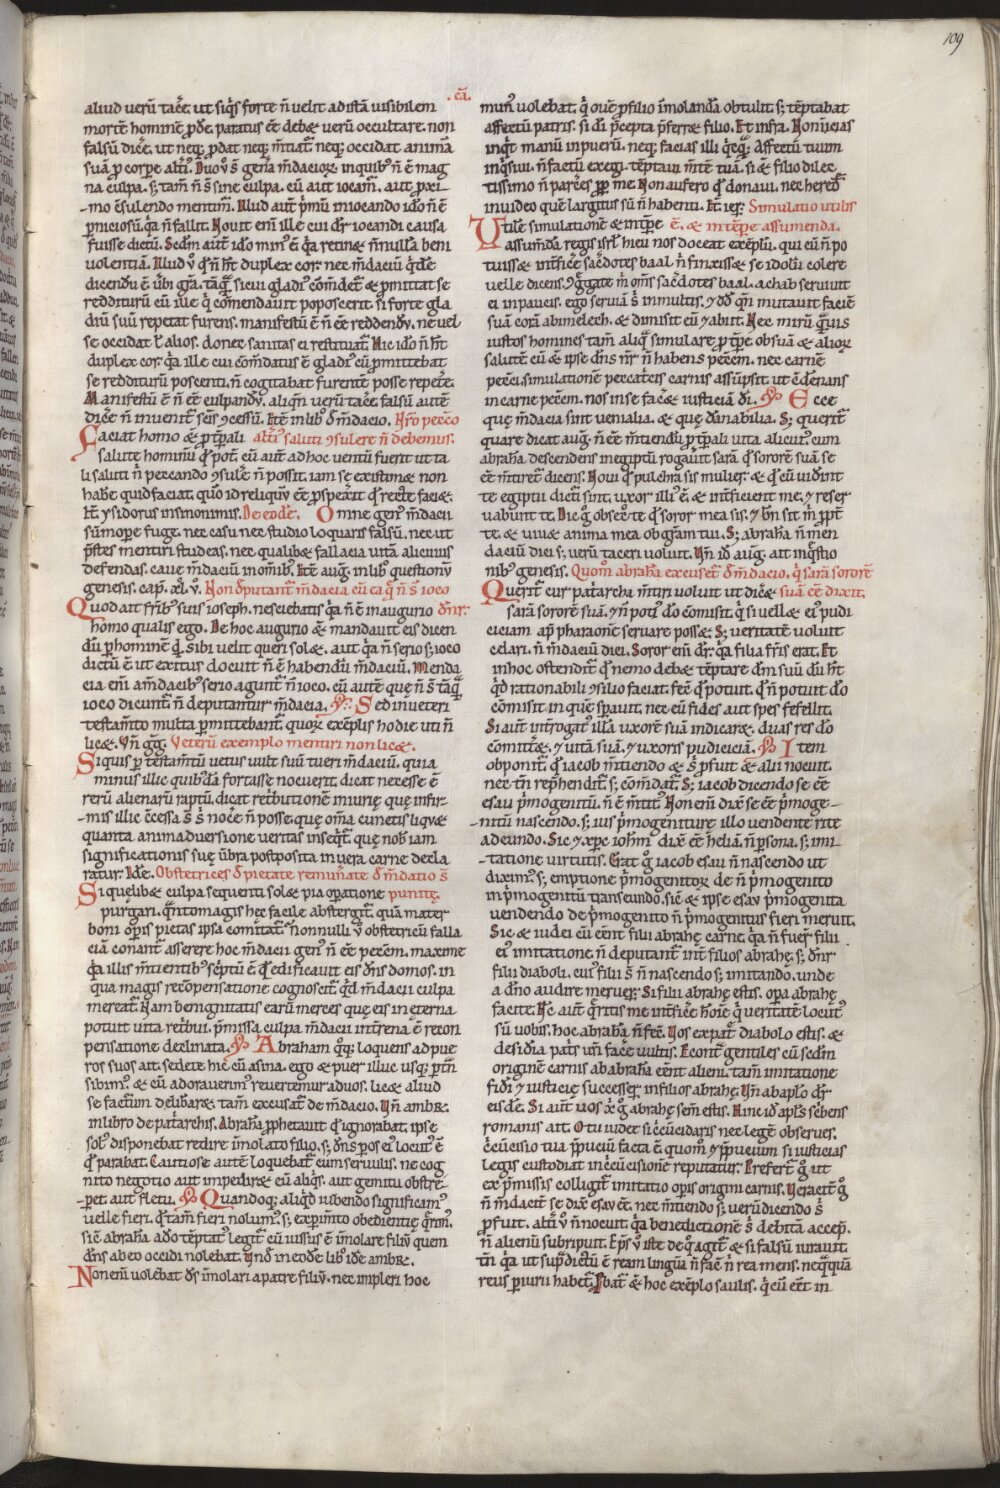 109
.cā.
aliud verū tacēe. ut siq̄s forte n̄ velit ad istā visibilem
mortē hominē ꝑdē. paratus ēe debeat verū occultare. non
falsū dicēe. ut neq; ꝑdat neq; mēntiat̄. neq; occidat animā
suā ꝓ corpe alt̄i. Duo v̄o s̄ genēa mendacioꝝ. in quib; n̄ ē mag
na culpa. s; tam̄ n̄ s̄ sine culpa. cū aut iocam̄. aut ꝓxi
mo ↄsulendo mentim̄. Illud aut̄ p̄mū in iocando ido n̄ ē
ꝑniciosū. q̄a n̄ fallit. Novit enī ille cui dr̄ iocandi causa
fuisse dictū. Scd̄m aut̄ ido min; ē q̄a retinet n̄nullā beni
volentiā. Illud v̄o q̄d n̄ ht̄ duplex cor. nec mendaciū q̄dē
dicendū ē. ūbi gr̄a. tāq̄ si cui gladi; cōmdēt̄ et ꝓmittat se
redditurū cū ille q̄ cōmendavit poposcerit. si forte gla
diū suū repetat furens. manifestū ē n̄ ēe reddendū. ne vel
se occidat l̄ alios. donec sanitas ei restituat̄. Hic ido n̄ ht̄
duplex cor. q̄a ille cui cōmdatus ē gladi; cū ꝓmittebat
se redditurū poscenti. n̄ cogitabat furentē posse repetēe.
Manifestū ē n̄ ēe culpandū. aliqn̄ verū tacēe. falsū autē
dicēe n̄ invenit̄ sc̄is ↄcessū. Itē in lib̄ d̄ mdacio. Nr̄o pecc̄o
Faciat homo et ꝓ tēpali alt̄i; saluti ↄsulere n̄ debemus.
salute hominū q̄d pot̄. cū aut̄ ad hoc ventū fuerit ut ta
li saluti n̄ peccando ↄsulēe n̄ possit. iam se existimet non
habēe quid faciat. quō id reliquū ēe ꝑspexit q̄d recte faciet.
Itē ysidorus in sinonimis. De eodē. Omne gen; mdacii
sūmope fuge. nec casu nec studio loquaris falsū. nec ut
p̄stes mentiri studeas. nec qualibet fallacia vitā alicuius
defendas. cave mdaciū in om̄ib;. Itē auḡ. in lib̄ questionū
genesis. cap̄. xl.v. Non d̄putant̄ mdacia cū ea q̄ n̄ s̄ ioco
Quod ait fr̄ib; suis ioseph. nesciebatis q̄a n̄ ē in augurio dn̄r.
homo qualis ego. De hoc augurio et mandavit eis dicen
dū ꝑ hominē q̄d sibi velit queri solet. aut q̄a n̄ serio s; ioco
dictū ē ut exitus docuit n̄ ē habendū mdaciū. Menda
cia enī a mdacib; serio agunt̄ n̄ ioco. cū autē que n̄ s̄ tāq̄
ioco dicunt̄. n̄ deputantur mdacia. Sed in veteri
testamto multa ꝑmittebant̄. quoꝝ exēplis hodie uti n̄
licet. Vn̄ gḡ. Veterū exemplo mentiri non licet.
Siquis ꝑ testamtū vetus vult suū tueri mdaciū. quia
minus illic quib;dā fortasse nocuerit. dicat necesse ē
rerū alienarū raptū. dicat ret̄butionē iniurię. quę infir
mis illic ↄcessa s̄. s̄ nocēe n̄ posse. quę om̄a cunctis liquet
quanta animadversione veritas inseq̄t̄. que nob̄ iam
significationis suę ūbra postposita in vera carne decla
ratur. Idē. Obstetrices d̄ pietate remunāte d̄ mdatio s̄
Si quelibet culpa sequenti solet pia opatione punitę.
purgari. q̄ntomagis hec facile abstergit̄. quā mater
boni opis pietas ipsa comitat̄. Nonnulli v̄o obstetricū falla
ciā conant̄ asserere hoc mdacii gen; n̄ ēe peccm̄. maxime
q̄a illis mentientib; sc̄ptū ē q̄d edificavit eis dn̄s domos. in
qua magis recōpensatione cognoscit̄. q̄d mdacii culpa
mereat̄. Nam benignitatis earū merces que eis in eterna
potuit vita ret̄bui. p̄missa culpa mdacii in t̄rena ē recon
pensatione declinata. Abraham q̄q; loquens ad pue
ros suos ait. sedete hic cū asina. ego et puer illuc usq; ꝓpan̄
sibim̄. et cū adoraverim̄ revertemur ad vos. licet aliud
se facturū delib̄aret. tam̄ excusat̄ de mdacio. Vn̄ ambr̄.
in libro de pat̄archis. Abrahā ꝓphetavit q̄d ignorabat. ipse
sol; disponebat redire īmolato filio. s; dn̄s ꝑ os ei; locut; ē
q̄d parabat. Cautiose autē loquebat̄ cum servulis. ne cog
nito negotio aut impediret eū aliq̄s. aut gemitu obstre
pet. aut fletu. Quandoq; aliq̄d iubendo significam̄
velle fieri. q̄d tam̄ fieri nolum̄. s; expimto obedientię q̄rim̄.
sic̄ abrahā a dō tēptat; legit̄ cū iussus ē īmolare filiū quem
dn̄s ab eo occidi nolebat. Vn̄ in eodē lib̄ idē ambr̄.
Non enī volebat ds̄ īmolari a patre filiū. nec impleri hoc
mun; volebat. q̄ ovē ꝓ filio īmolandā obtulit. s; tēptabat
affectū patris. si dī p̄cepta p̄ferret filio. Et infra. Non iicias
inq̄t manū in puerū. neq; facias illi q̄cq̄. Affectū tuum
inq̄sivi. n̄ factū exegi. tēptavi mtē tuā. si et filio dilec
tissimo n̄ parcēs ꝓp̄ me. Non aufero q̄d donavi. nec heredē
invideo quē largitus sū n̄ habenti. Itē iero. Simulatio utilis
Utilē simulationē et in tēpe ē. et in tēpe assumenda.
assumdā regis isrl̄ hieu nos doceat exēplū. qui cū n̄ po
tuisset intficēe sac̄dotes baal n̄ finxisset se idolū colere
velle dicens. ↄgregate m̄ om̄s sac̄dotes baal. achab servivit
ei in paucis. ego serviā s̄ in multis. et dd̄ qn̄ mutavit faciē
suā corā abimelech. et dimisit eū et abiit. Nec mirū quāvis
iustos homines tam̄ aliq̄ simulare ꝓ tēpe ob suā et alioꝝ
salutē. cū et ipse dn̄s nr̄ n̄ habens peccm̄. nec carnē
pecci. simulationē peccatricis carnis assūpsit. ut ↄdēnans
in carne peccm̄. nos in se facēet iusticiā dī. Ecce
quę mdacia sint venialia. et quę dānabilia. S; querit̄
quare dicat auḡ. n̄ ēe mtiendū ꝓ tēpali vita alicui; cum
abrahā descendens in egiptū rogavit sarā q̄d sororē suā se
ēe mtiret̄ dicens. Novi q̄d pulchra sis mulier. et q̄d cū viderint
te egiptii dicturi sint. uxor illi; ē. et intficient me. et reser
vabunt te. Dic go obsecro te q̄d soror mea sis. ut bn̄ sit m̄ ꝓpt̄
te. et vivat anima mea ob gram tui. S; abrahā n̄ men
daciū dici s; verū taceri voluit. Vn̄ id auḡ. ait in q̄stio
nib; genesis. Quom̄ abrahā excuset̄ d̄ mdacio. q̄ sarā sororē
Querit̄ cur pat̄archa mtiri voluit ut dicēt suā ēe dixit.
sarā sororē suā. et n̄ poti; dō cōmisit. q̄ si vellet ei; pudi
ciciam ap̄ pharaonē servare posset. S; veritatē voluit
celari. n̄ mdaciū dici. Soror enī dr̄. q̄a filia fr̄is erat. Et
in hoc ostendit̄ q̄d nemo debet tēptare dm̄ suū dū ht̄
q̄d rationabili ↄsilio faciat. fecit q̄d potuit. q̄d n̄ potuit dō
cōmisit in quē spavit. nec eū fides aut spes fefellit.
Si aut̄ introgat; illā uxorē suā indicaret. duas res dō
cōmittet. et vitā suā. et uxoris pudiciciā. Item
obponit̄. q̄d iacob mtiendo et s̄ ꝓfuit et alii nocuit.
nec tn̄ rep̄hendit̄. s; cōmdat̄. S; iacob dicendo se ēe
esau p̄mogenitū. n̄ ē mtit;. Non enī dix̄ se ēe p̄moge
nitū nascendo. s; ius p̄mogeniture illo vendente rite
adeundo. Sic et xp̄c iohm̄ dix̄ ēe heliā. n̄ psona. s; imi
tatione virtutis. Erat go iacob esau n̄ nascendo ut
dixim̄. s; emptione p̄mogenitoꝝ de n̄ p̄mogenito
in p̄mogenitū transeundo. sic̄ et ipse esav p̄mogenita
vendendo de p̄mogenito n̄ p̄mogenitus fieri meruit.
Sic et iudei cū eēnt filii abrahę carne. q̄a n̄ fuer̄ filii
ei; imitatione n̄ deputant̄ int̄ filios abrahę. s; dn̄r
filii diaboli. cui; filii s̄ n̄ nascendo s; imitando. unde
a dn̄o audire meruer̄. Si filii abrahę estis. opa abrahę
facite. Nc̄ aut̄ q̄ritis me intficēe hōiē q̄ veritatē locut;
sū vobis. hoc abrahā n̄ fec̄. Vos ex pat̄ diabolo estis. et
desid̄ia pat̄s vr̄i facēe vultis. Econt̄ gentiles cū scdm̄
originē carnis ab abrahā eēnt alieni. tam̄ imitatione
fidī et iusticię successer̄ in filios abrahę. Vn̄ ab aplo dr̄
eisdē. Si aut̄ vos x̄ go abrahę sem̄ estis. Hinc id aplus sc̄bens
romanis ait. O tu iudee si c̄cūcidaris nec legē observes.
c̄cūcisio tua p̄puciū facta ē. quom̄ et p̄puciū si iusticias
legis custodiat in c̄cūcisionē reputatur. Prefert̄ go ut
ex p̄missis colligit̄ imitatio opis origini carnis. Veracit̄ go
n̄ mdacit̄ se dix̄ esav ēe. nec mtiendo s; verū dicendo s̄
ꝓfuit. alt̄i v̄o n̄ nocuit. q̄a benedictionē s̄ debitā accep̄.
n̄ alienū subripuit. Ep̄s v̄o iste de q̄o agit̄ et si falsū iuravit.
tn̄ q̄a ut supdictū ē ream linguā n̄ facit n̄ rea mens. neq̄q̄uā
reus periurii habet̄. Pbat̄ et hoc exēplo saulis. q̄ cū eēt in